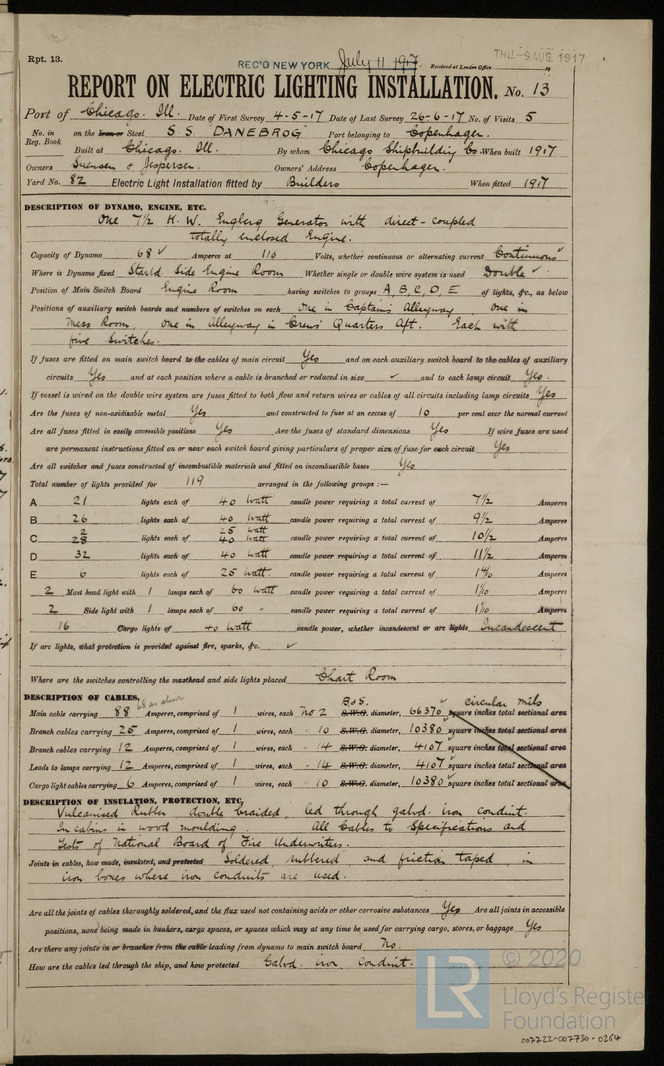 Rpt. 13.
REC'D NEW YORK July 11 1917. Received at London Office THU. -9 AUG. 1917
REPORT ON ELECTRIC LIGHTING INSTALLATION. No. 13
Port of Chicago. Ill. Date of First Survey 4-5-17 Date of Last Survey 26-6-17 No. of Visits 5
No. in Reg. Book on the Iron or Steel S S DANEBROG Port belonging to Copenhagen.
Built at Chicago. Ill. By whom Chicago Shipbuilding Co. When built 1917
Owners Svensen & Jespersen. Owners' Address Copenhagen.
Yard No. 82 Electric Light Installation fitted by Builders When fitted 1917
DESCRIPTION OF DYNAMO, ENGINE, ETC.
One 7½ K.W. Engberg Generator with direct-coupled
totally enclosed Engine.
Capacity of Dynamo 68 ✓ Amperes at 110 Volts, whether continuous or alternating current Continuous ✓
Where is Dynamo fixed Starbd Side Engine Room Whether single or double wire system is used Double ✓
Position of Main Switch Board Engine Room having switches to groups A, B, C, D, E of lights, &c., as below
Positions of auxiliary switch boards and numbers of switches on each One in Captain's Alleyway, One in
Mess Room, One in Alleyway in Crew's Quarters Aft. Each with
five switches.
If fuses are fitted on main switch board to the cables of main circuit Yes and on each auxiliary switch board to the cables of auxiliary
circuits Yes and at each position where a cable is branched or reduced in size ✓ and to each lamp circuit Yes.
If vessel is wired on the double wire system are fuses fitted to both flow and return wires or cables of all circuits including lamp circuits Yes
Are the fuses of non-oxidizable metal Yes and constructed to fuse at an excess of 10 per cent over the normal current
Are all fuses fitted in easily accessible positions Yes Are the fuses of standard dimensions Yes If wire fuses are used
are permanent instructions fitted on or near each switch board giving particulars of proper size of fuse for each circuit Yes
Are all switches and fuses constructed of incombustible materials and fitted on incombustible bases Yes
Total number of lights provided for 119 arranged in the following groups :—
A 21 lights each of 40 Watt candle power requiring a total current of 7½ Amperes
B 26 lights each of 40 Watt candle power requiring a total current of 9½ Amperes
C 2 28 lights each of 25 Watt 40 Watt candle power requiring a total current of 10½ Amperes
D 32 lights each of 40 Watt candle power requiring a total current of 11½ Amperes
E 6 lights each of 25 Watt. candle power requiring a total current of Amperes
2 Mast head light with 1 lamps each of 60 Watt candle power requiring a total current of 1 1/10 Amperes
2 Side light with 1 lamps each of 60 " candle power requiring a total current of 1 1/10 Amperes
16 Cargo lights of 40 Watt candle power, whether incandescent or arc lights Incandescent
If arc lights, what protection is provided against fire, sparks, &c. ✓
Where are the switches controlling the masthead and side lights placed Chart Room
DESCRIPTION OF CABLES. 68 as above B&S. circular mils
Main cable carrying 88 Amperes, comprised of 1 wires, each No 2 S.W.G. diameter, 66370 square inches total sectional area
Branch cables carrying 25 Amperes, comprised of 1 wires, each " 10 S.W.G. diameter, 10380 square inches total sectional area
Branch cables carrying 12 Amperes, comprised of 1 wires, each " 14 S.W.G. diameter, 4107 square inches total sectional area
Leads to lamps carrying 12 Amperes, comprised of 1 wires, each " 14 S.W.G. diameter, 4107 square inches total sectional area
Cargo light cables carrying 6 Amperes, comprised of 1 wires, each " 10 S.W.G. diameter, 10380 square inches total sectional area
DESCRIPTION OF INSULATION, PROTECTION, ETC.
Vulcanised Rubber double braided, led through galvd. iron conduit.
In cabins in wood moulding. All Cables to Specifications and
Tests of National Board of Fire Underwriters.
Joints in cables, how made, insulated, and protected Soldered, rubbered and friction taped, in
iron boxes where iron conduits are used.
Are all the joints of cables thoroughly soldered, and the flux used not containing acids or other corrosive substances Yes Are all joints in accessible
positions, none being made in bunkers, cargo spaces, or spaces which may at any time be used for carrying cargo, stores, or baggage Yes
Are there any joints in or branches from the cable leading from dynamo to main switch board No.
How are the cables led through the ship, and how protected Galvd. iron conduit.
LR © 2020
Lloyd's Register
Foundation
007722-007730-0264